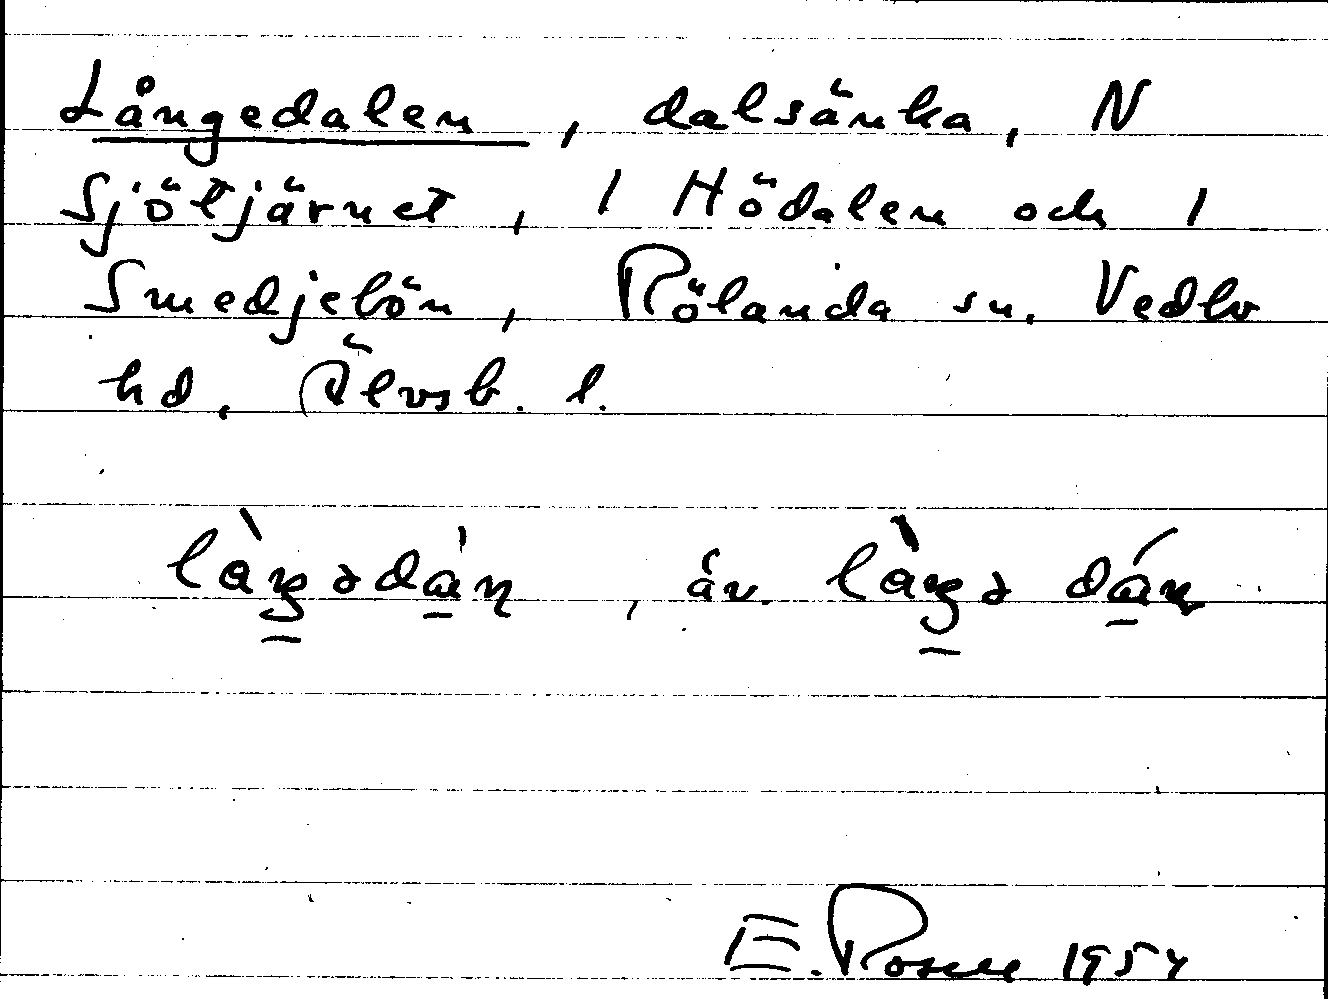 Långedalen, dalsänka, N
Sjötjärnet, / Hödalen och /
Smedjebön, Rölanda sn. Vedbo
hd. Älvsb. l.
làŋədàn, äv. làŋə dán
E. Rosell 1954